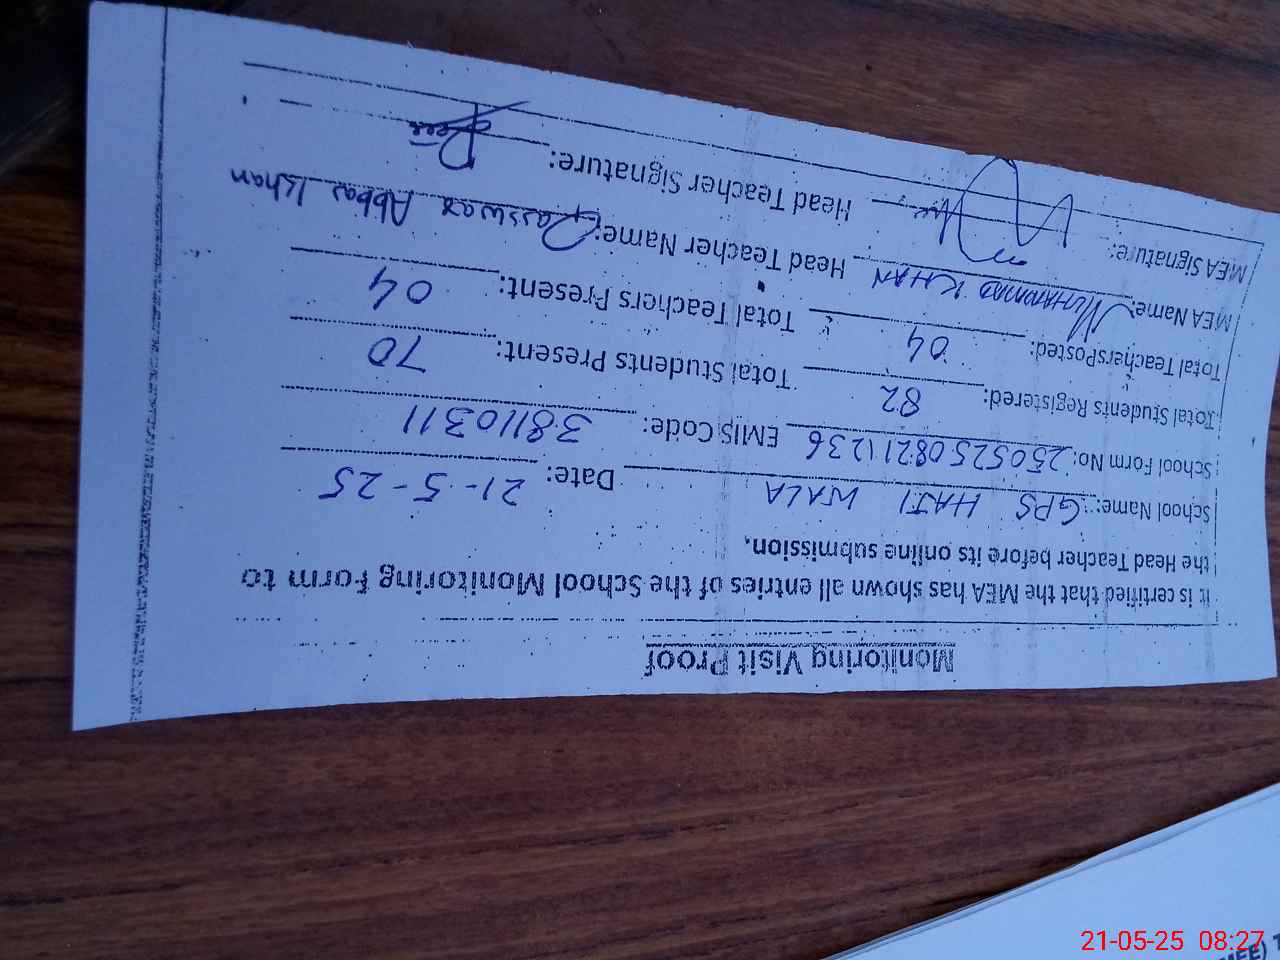 Monitoring Visit Proof
It is certified that the MEA has shown all entries of the School Monitoring Form to
the Head Teacher before its online submission.
School Name: GPS HAJI WALA Date: 21-5-25
School Form No: 25052508211236 EMIS Code: 38110311
Total Students Registered: 82 Total Students Present: 70
Total TeachersPosted: 04 Total Teachers Present: 04
MEA Name: MUHAMMAD KHAN Head Teacher Name: Abbas Khan
MEA Signature: Head Teacher Signature:
21-05-25 08:27